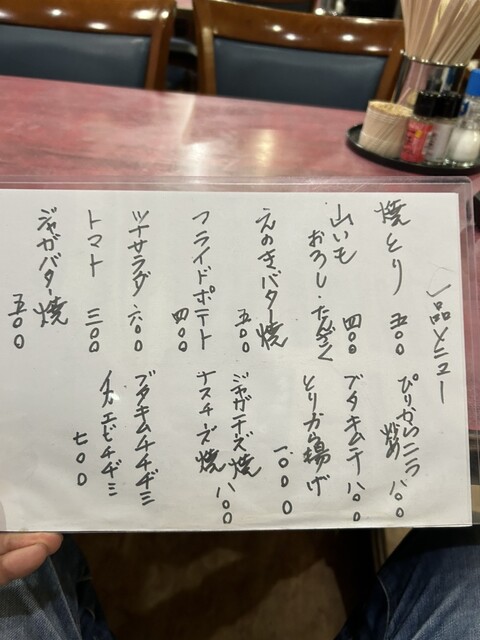 一品メニュー
焼とり 五〇〇
山いも
おろし・たんざく 四〇〇
えのきバター焼 五〇〇
フライドポテト 四〇〇
ツナサラダ 六〇〇
トマト 三〇〇
ジャガバター焼 五〇〇
ぴりからニラ
炒め 八〇〇
ブタキムチ 八〇〇
とりから揚げ 一、〇〇〇
ジャガチーズ焼
ナスチーズ焼 八〇〇
ブタキムチチヂミ
イカエビチヂミ 七〇〇